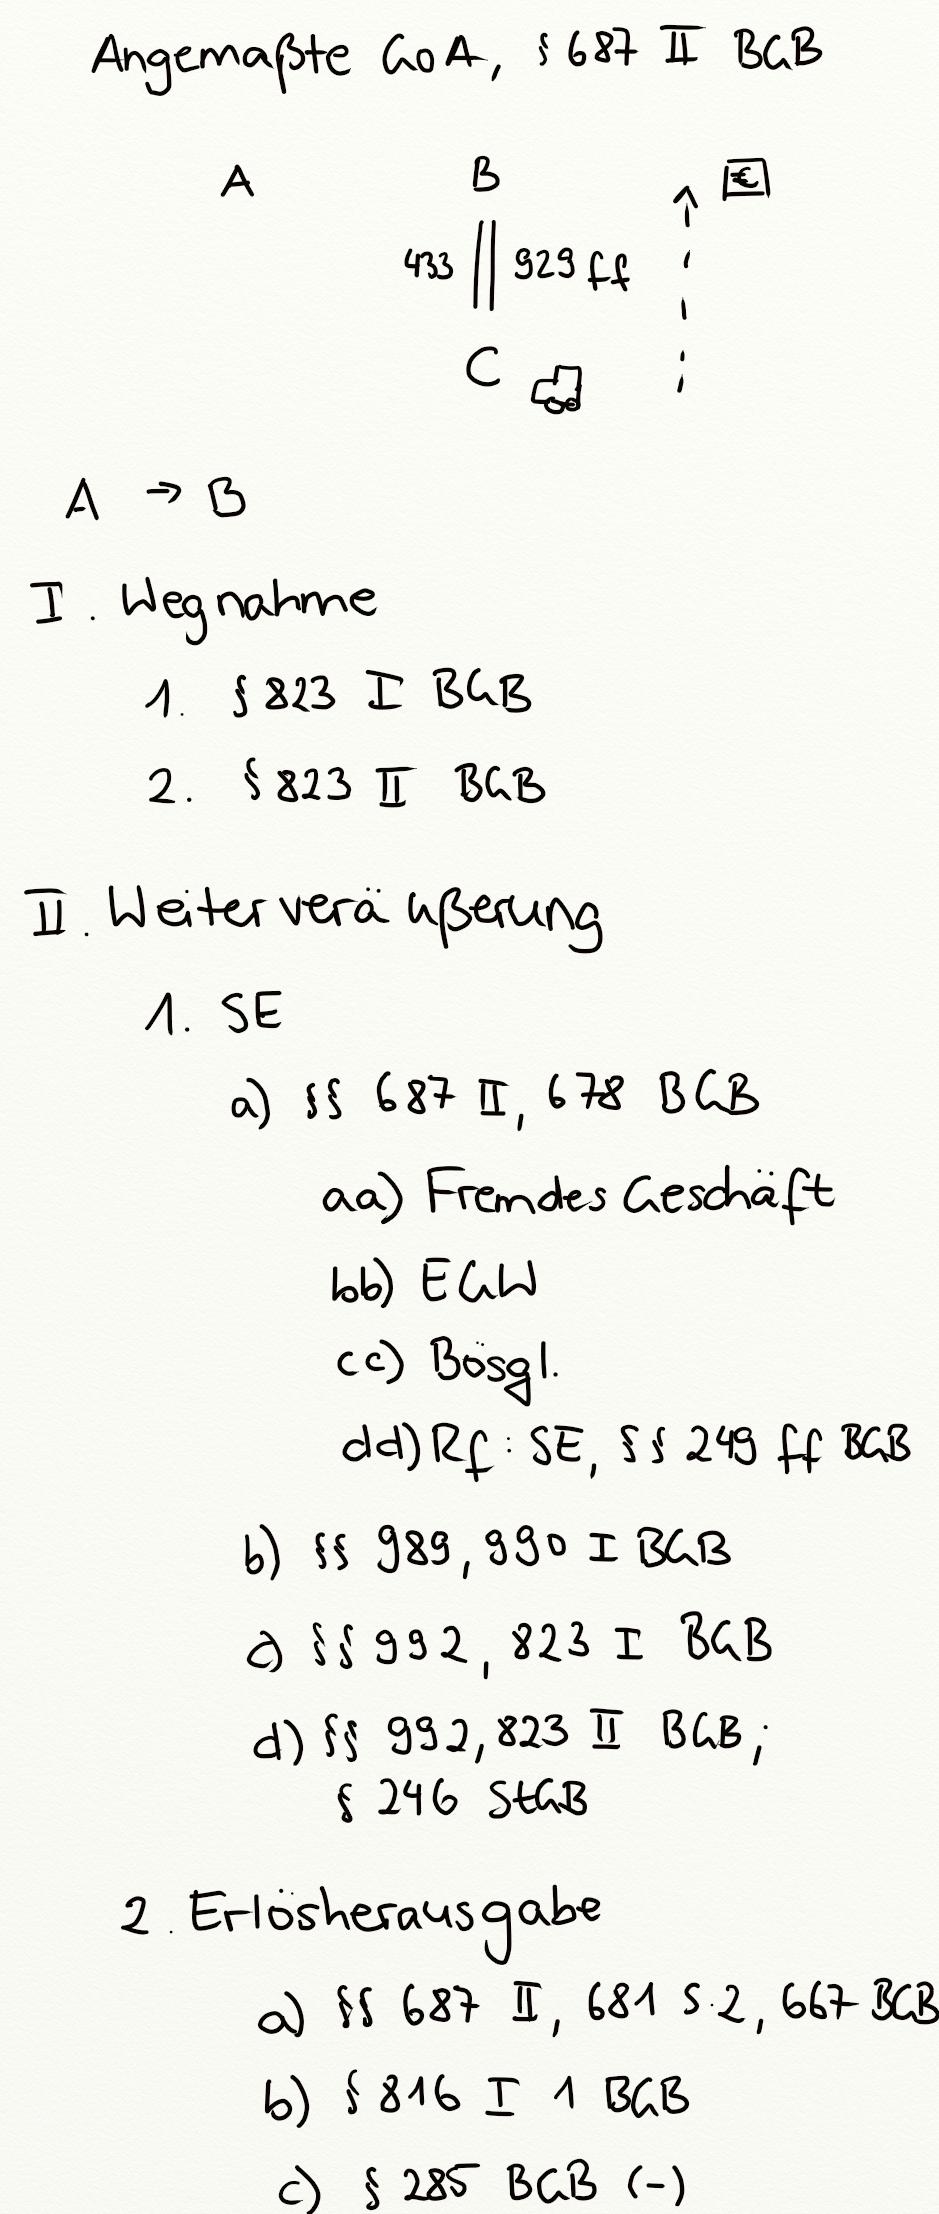 Angemaßte GoA, § 687 II BGB
A B €
433 929 ff
C
A → B
I. Wegnahme
1. § 823 I BGB
2. § 823 II BGB
II. Weiterveräußerung
1. SE
a) §§ 687 II, 678 BGB
aa) Fremdes Geschäft
bb) EGW
cc) Bösgl.
dd) Rf: SE, §§ 249 ff BGB
b) §§ 989, 990 I BGB
c) §§ 992, 823 I BGB
d) §§ 992, 823 II BGB;
§ 246 StGB
2. Erlösherausgabe
a) §§ 687 II, 681 S.2, 667 BGB
b) § 816 I 1 BGB
c) § 285 BGB (-)